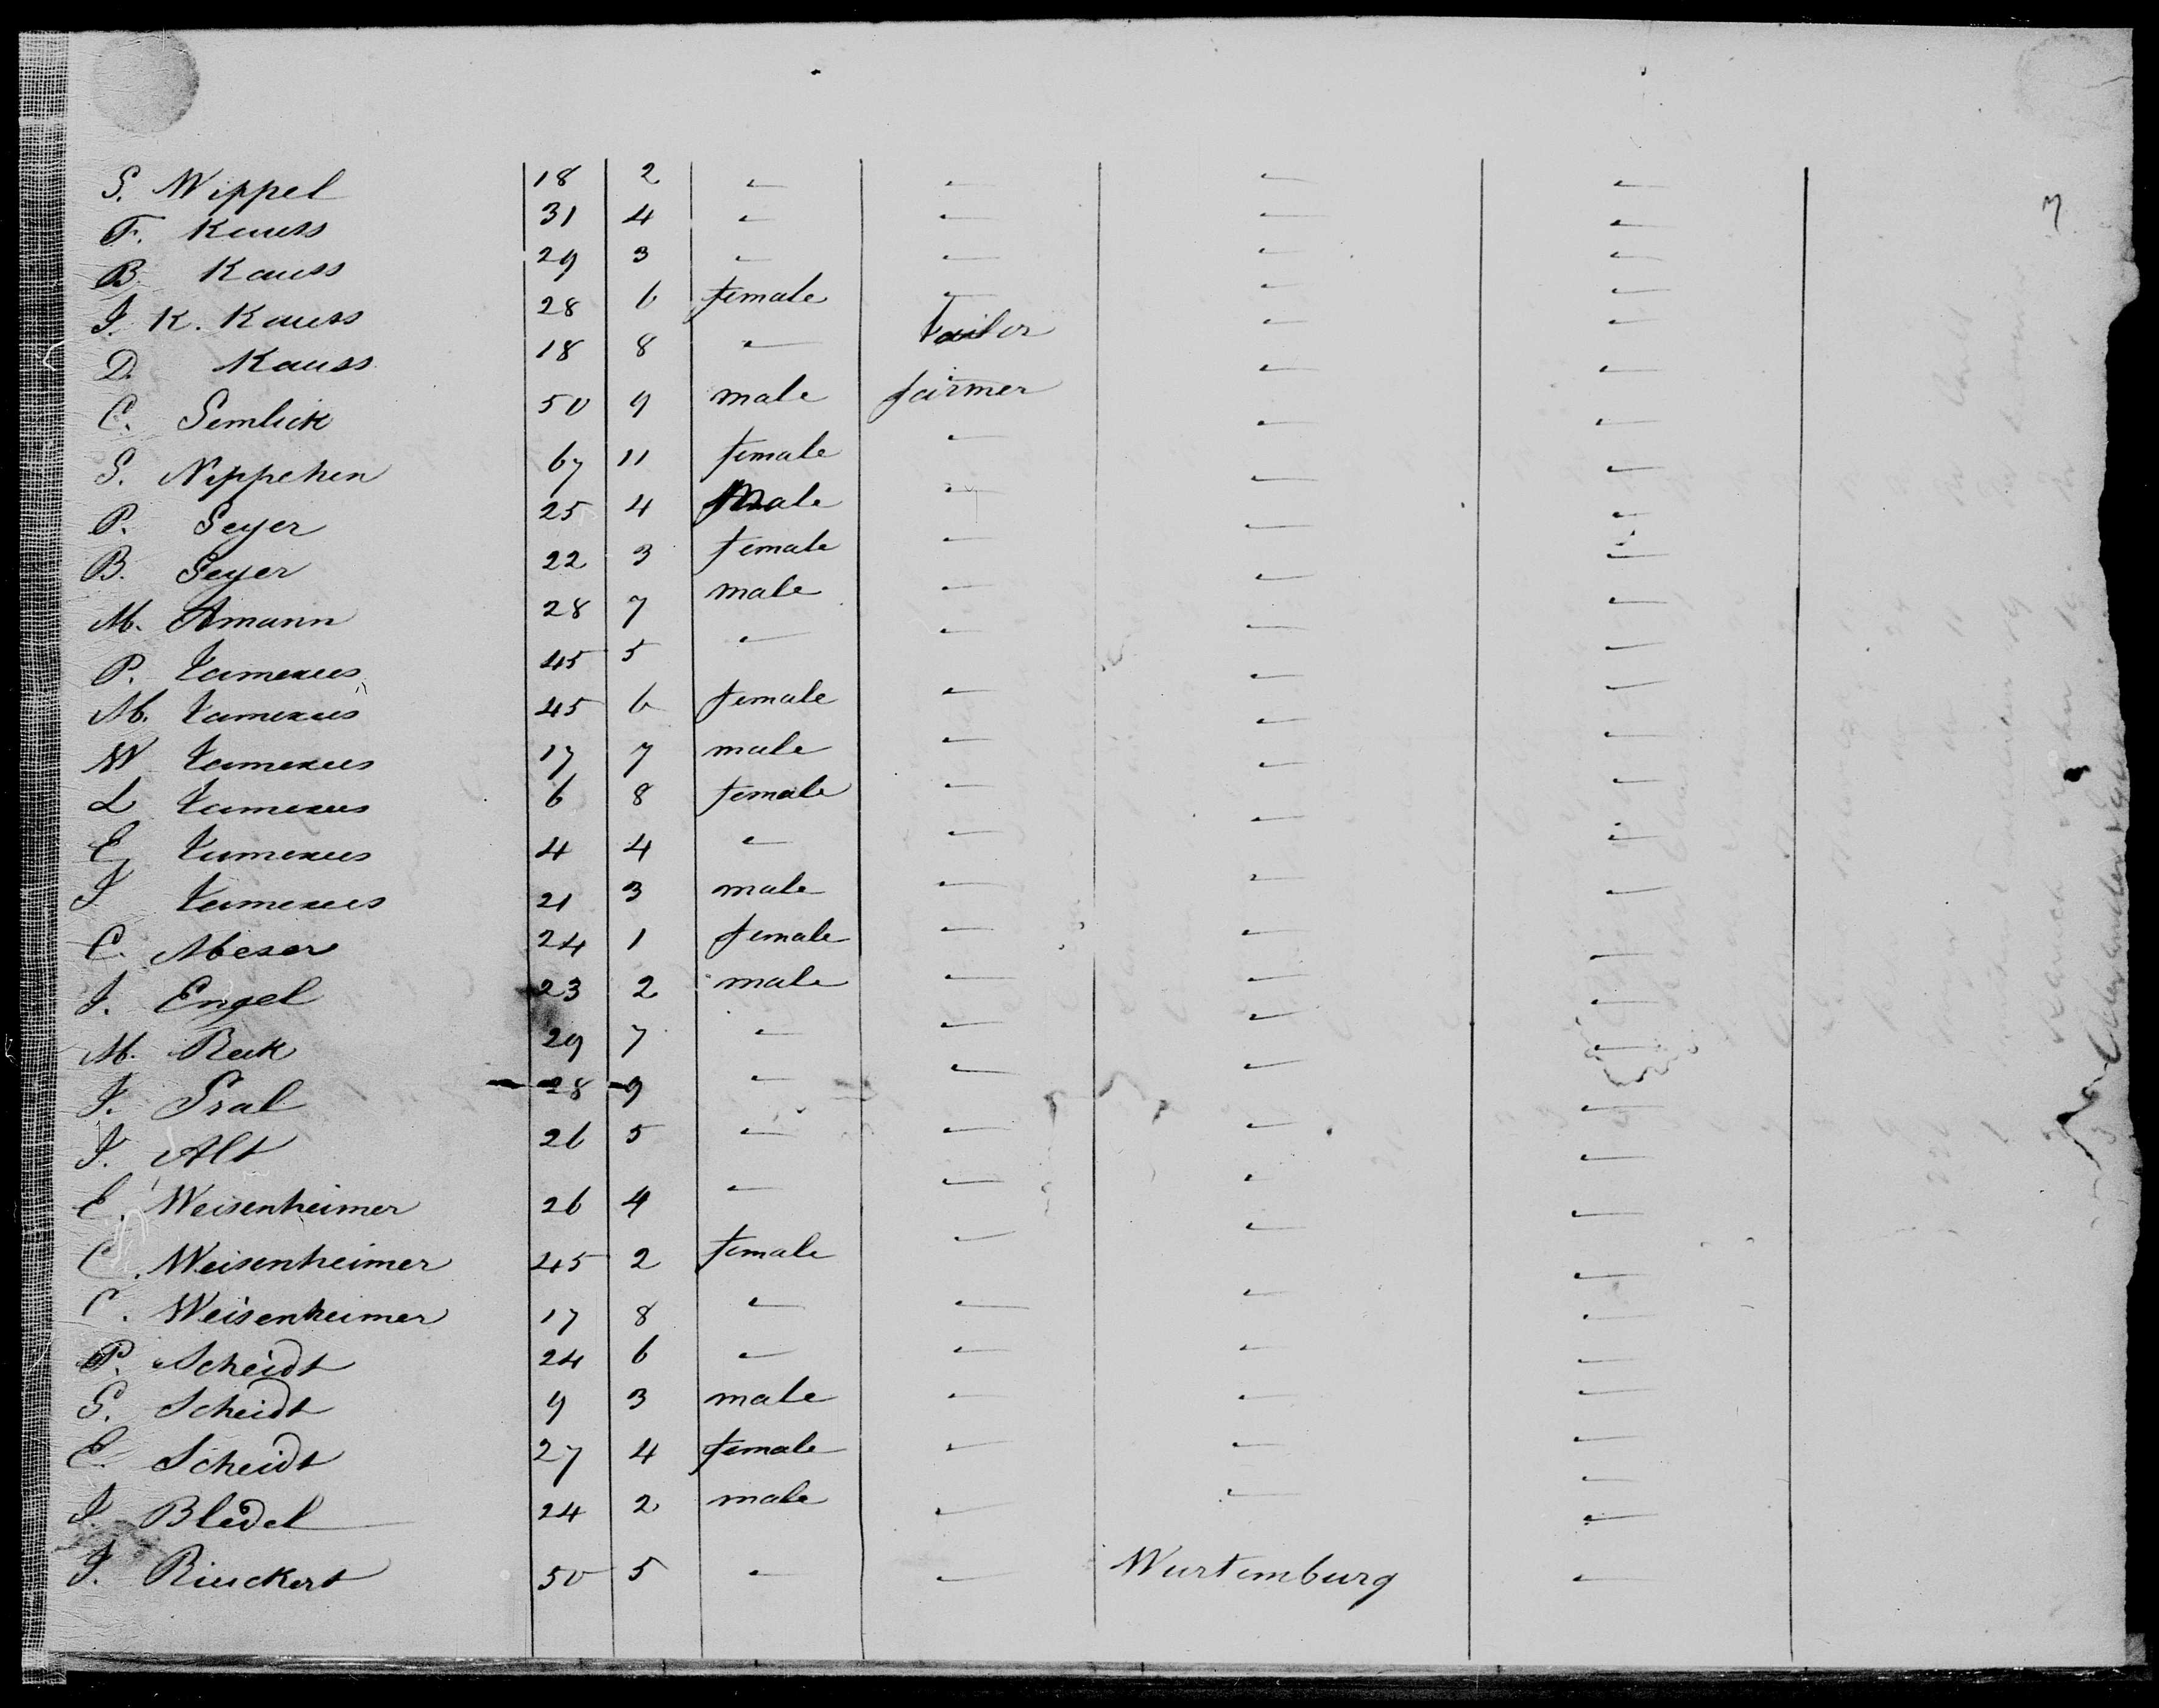 7
S. Wippel 18 2 " " " "
F. Kauss 31 4 " " " "
B. Kauss 29 3 " " " "
J. K. Kauss 28 6 female " " "
D. Kauss 18 8 " tailor " "
C. Semlick 50 9 male farmer " "
S. Nippchen 67 11 female " " "
P. Seyer 25 4 Male " " "
B. Seyer 22 3 female " " "
M. Amann 28 7 male " " "
P. 45 5 " " " "
M. 45 6 female " " "
W 17 7 male " " "
L 6 8 female " " "
E 4 4 " " " "
J 21 3 male " " "
C. Meser 24 1 female " " "
J. Engel 23 2 male " " "
M. Reck 29 7 " " " "
J. Pral 28 9 " " " "
J. Alt 26 5 " " " "
E. Weisenheimer 26 4 " " " "
C. Weisenheimer 45 2 female " " "
C. Weisenheimer 17 8 " " " "
P. Scheidt 24 6 " " " "
S. Scheidt 9 3 male " " "
E. Scheidt 27 4 female " " "
J. Bledel 24 2 male " " "
J. Rieckert 50 5 " " Wurtemburg "